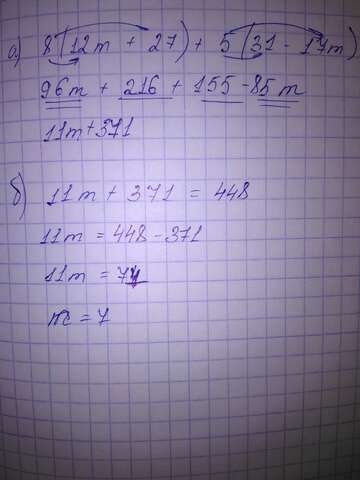 а) 8(12m + 27) + 5(31 - 17m)
96m + 216 + 155 - 85m
11m + 371
б) 11m + 371 = 448
11m = 448 - 371
11m = 77
m = 7